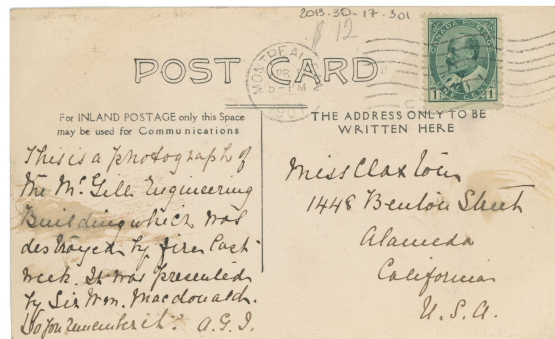 2013-30-17-301
$12
POST CARD
MONTREAL
PM
CANADA POSTAGE
1 1
For INLAND POSTAGE only this Space
may be used for Communications
THE ADDRESS ONLY TO BE
WRITTEN HERE
This is a photograph of
the McGill Engineering
Building which was
destroyed by fire last
week. It was presented
by Sir Wm. Macdonald.
Do you remember it? A.G.I.
Miss Claxton
1448 Benton Street
Alameda
California
U.S.A.